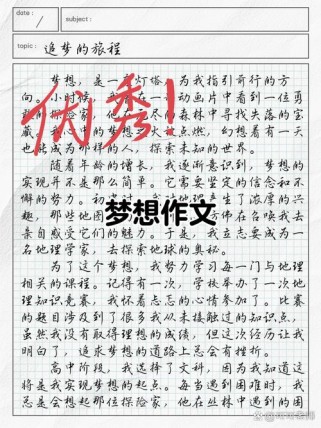 date :
/
subject:
topic: 追梦的旅程
梦想,是一 灯塔, 为我指引前行的方
向。小时候, 在一 动画片中看到一位勇
探险家,他 尽的森林中寻找失落的宝
中的梦想 火被点燃,幻想着有一天
也 成为那样的人,探索未知的世界。
优秀!
随着年龄的增长,我逐渐意识到,梦想的
实现并不是那么简单。它需要坚定的信念和不
懈的努力。初 产生了浓厚的兴
趣,那些地图 仿佛在召唤我去
亲自感受它们的魅力。于是,我立志要成为一
名地理学家,去探索地球的奥秘。
梦想作文
为了这个梦想,我努力学习每一门与地理
相关的课程。记得有一次,学校举办了一次地
理知识竞赛,我怀着忐忑的心情参加了。比赛
的题目涉及到了很多我从未接触过的知识点,
虽然我没有取得理想的成绩,但这次经历让我
明白了,追求梦想的道路上总会有挫折。
高中阶段,我选择了文科,因为我知道这
将是我实现梦想的起点。每当遇到困难时,我
总是会想起那位探险家,他在丛林中遇到的困